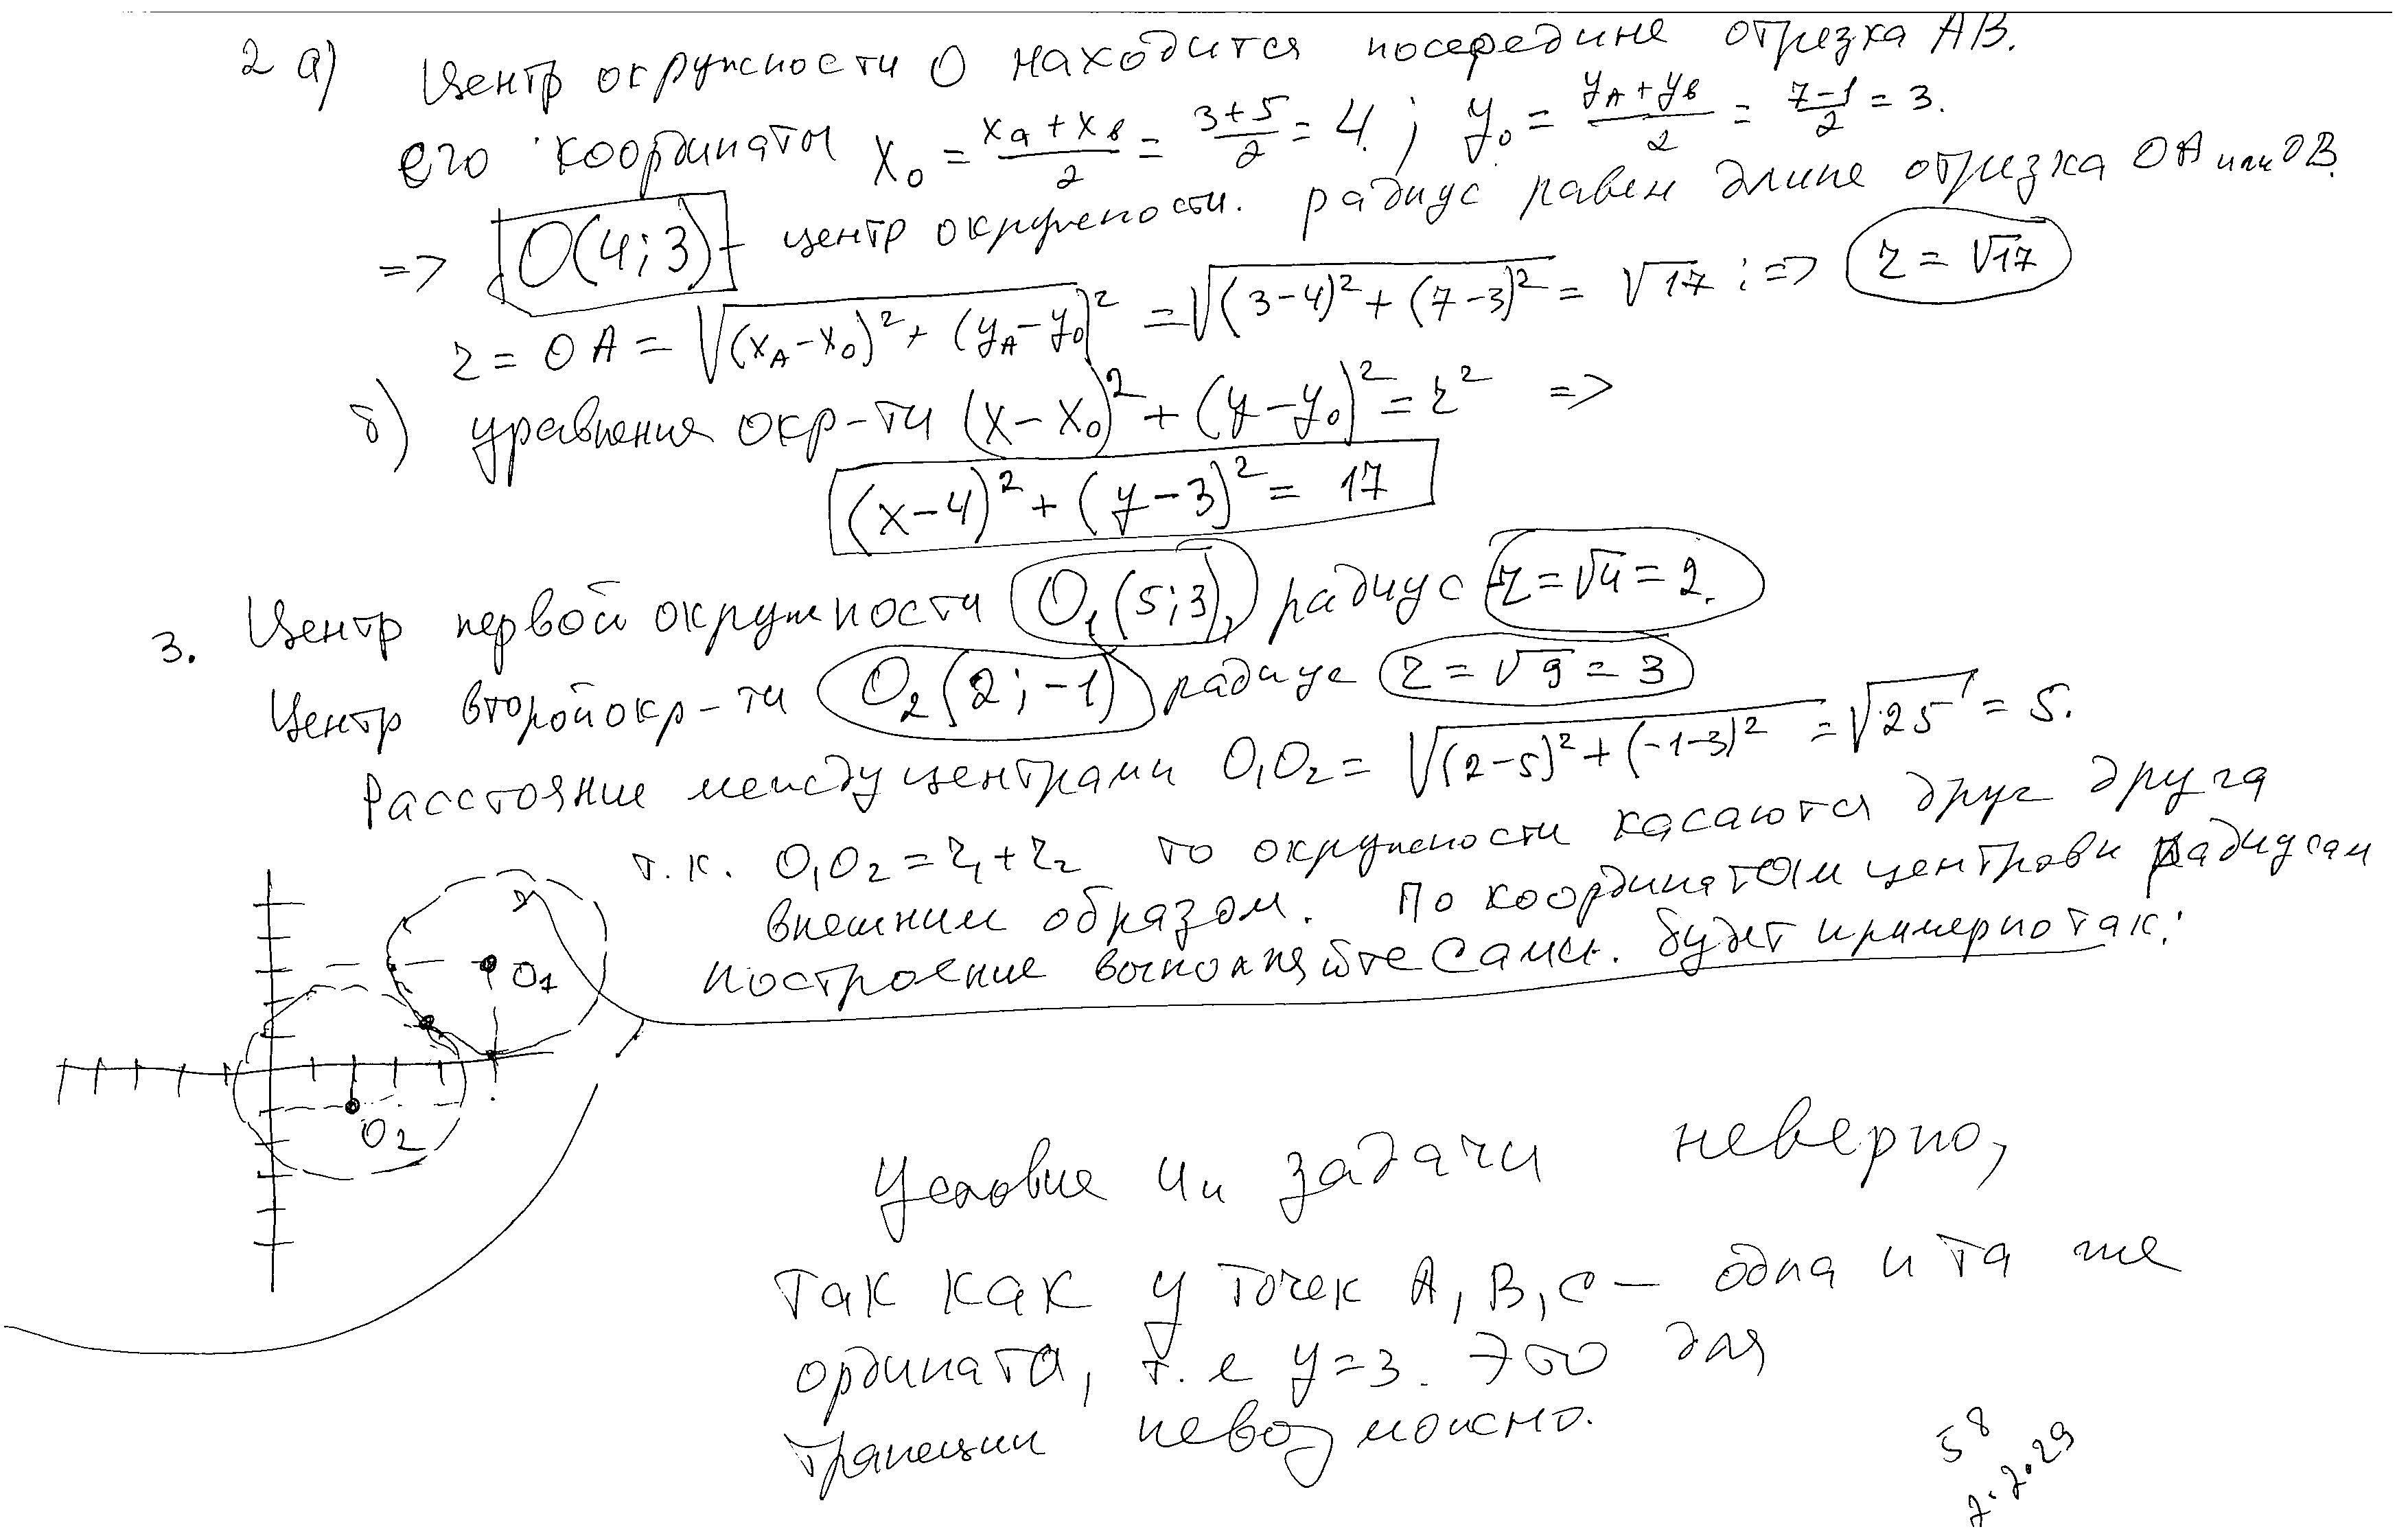 2 а) Центр окружности O находится посередине отрезка AB.
его координаты x₀ = (x_A + x_B)/2 = (3+5)/2 = 4; y₀ = (y_A + y_B)/2 = (7-1)/2 = 3.
=> O(4;3) - центр окружности. радиус равен длине отрезка OA или OB.
r = OA = √((x_A - x₀)² + (y_A - y₀)²) = √((3-4)² + (7-3)²) = √17; => r = √17
б) уравнения окр-ти (x - x₀)² + (y - y₀)² = r² =>
(x-4)² + (y-3)² = 17
3. Центр первой окружности O₁(5;3), радиус r = √4 = 2.
Центр второй окр-ти O₂(2;-1) радиус r = √9 = 3
Расстояние между центрами O₁O₂ = √((2-5)² + (-1-3)²) = √25 = 5.
т.к. O₁O₂ = r₁ + r₂ то окружности касаются друг друга
внешним образом. По координатам центров и радиусам
построение выполняйте сами. будет примерно так:
O₁
O₂
Условие 4й задачи неверно,
так как у точек A, B, C - одна и та же
ордината, т.е y=3. Это для
трапеции невозможно.
58
2.29